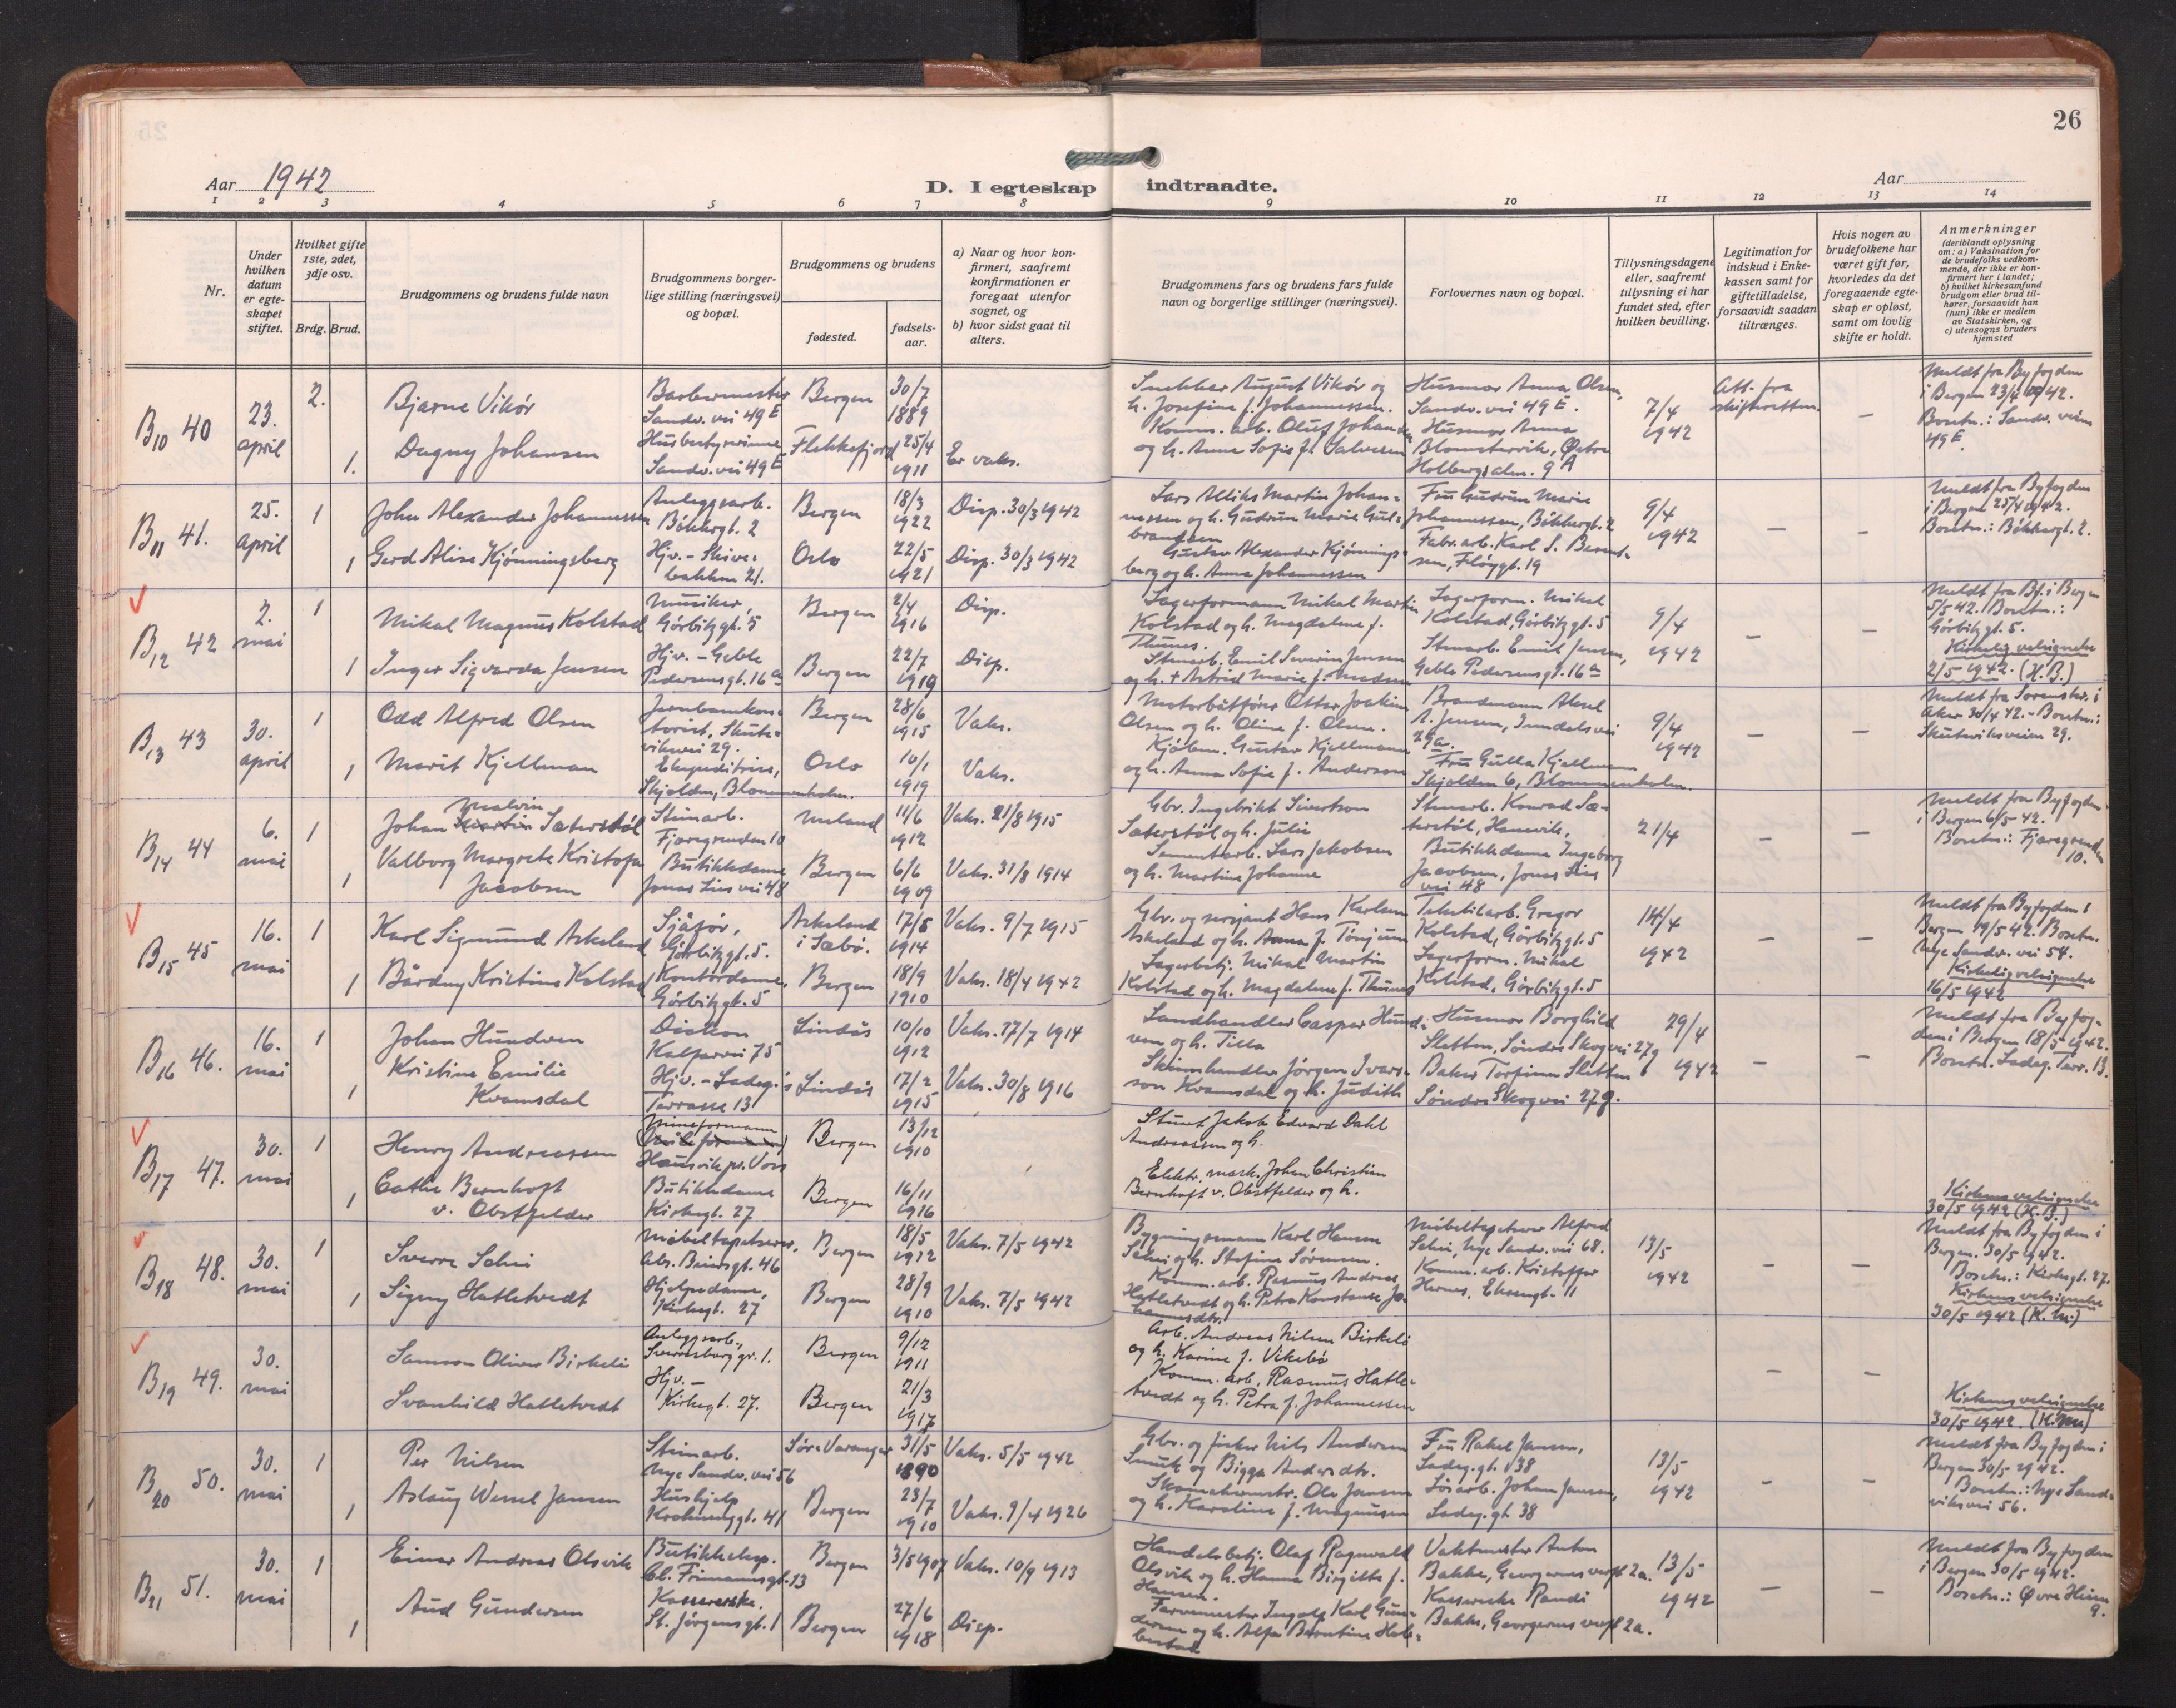 26
Aar 1942
D. I egteskap indtraadte.
Aar
1 2 3 4 5 6 7 8 9 10 11 12 13 14
Nr.
Under
hvilken
datum
er egte-
skapet
stiftet.
Hvilket gifte
1ste, 2det,
3dje osv.
Brdg. Brud.
Brudgommens og brudens fulde navn
Brudgommens borger-
lige stilling (næringsvei)
og bopæl.
Brudgommens og brudens
fødested.
fødsels-
aar.
a) Naar og hvor kon-
firmert, saafremt
konfirmationen er
foregaat utenfor
sognet, og
b) hvor sidst gaat til
alters.
Brudgommens fars og brudens fars fulde
navn og borgerlige stillinger (næringsvei).
Forlovernes navn og bopæl.
Tillysningsdagene
eller, saafremt
tillysning ei har
fundet sted, efter
hvilken bevilling.
Legitimation for
indskud i Enke-
kassen samt for
giftetilladelse,
forsaavidt saadan
tiltrænges.
Hvis nogen av
brudefolkene har
været gift før,
hvorledes da det
foregaaende egte-
skap er opløst,
samt om lovlig
skifte er holdt.
Anmerkninger
(deriblandt oplysning
om: a) Vaksination for
de brudefolks vedkom-
mende, der ikke er kon-
firmert her i landet;
b) hvilket kirkesamfund
brudgom eller brud til-
hører, forsaavidt han
(hun) ikke er medlem
av Statskirken, og
c) utensogns bruders
hjemsted
B10 40
23.
april
2.
1.
Bjarne Vikør
Dagny Johansen
Barbermester
Sandv. vei 49 E
Husbestyrerinne
Sandv. vei 49 E
Bergen
Flekkefjord
30/7
1889
25/4
1911
Er vaks.
Snekker August Vikør og
h. Josefine f. Johannessen.
Komm. arb. Oluf Johansen
og h. Anna Sofie f. Salvesen
Husmor Anna Olsen,
Sandv. vei 49 E.
Husmor Anna
Blomstervik, Østre
Holbergsalm. 9 A
7/4
1942
Att. fra
skifteretten.
—
Meldt fra Byfogden
i Bergen 23/4 1942.
Bosetn.: Sandv. veien
49 E.
B11 41.
25.
april
1
1
John Alexander Johannessen
Gerd Alise Kjønningsberg
Anleggsarb.
Bøkkergt. 2
Hjv. - Skive-
bakken 21.
Bergen
Oslo
18/3
1922
22/5
1921
Disp. 30/3 1942
Disp. 30/3 1942
Lars Martin Johan-
nessen og h. Gudrun Marie Gul-
brandsen
Gustav Alexander Kjønnings-
berg og h. Anna Johannessen
Fru Gudrun Marie
Johannessen, Bøkkergt. 2
Fabr. arb. Karl S. Bernt-
sen, Fløygt. 19
9/4
1942
—
—
Meldt fra Byfogden
i Bergen 25/4 1942.
Bosetn.: Bøkkergt. 2.
B12 42
2.
mai
1
1
Mikal Magnus Kolstad
Inger Sigvarda Jensen
Musiker,
Gørbitzgt. 5
Hjv. - Geble
Pedersensgt. 16 a
Bergen
Bergen
2/4
1916
22/7
1919
Disp.
Disp.
Lagerformann Mikal Martin
Kolstad og h. Magdalene f.
Thunes.
Stenarb. Emil Severin Jensen
og h. + Astrid Marie f. Madsen
Lagerform. Mikal
Kolstad, Gørbitzgt. 5
Stenarb. Emil Jensen,
Geble Pedersensgt. 16 a
9/4
1942
—
—
Meldt fra Bf. i Bergen
5/5 42. Bosetn.:
Gørbitzgt. 5.
Kirkelig velsignelse
2/5 1942. (H. B.)
B13 43
30.
april
1
1
Odd Alfred Olsen
Marit Kjellman
Jernbanekon-
torist, Skute-
viksvei 29.
Ekspeditrise,
Skjolden, Blommenholm.
Bergen
Oslo
28/6
1915
10/1
1919
Vaks.
Vaks.
Motorbåtfører Otter Joakim
Olsen og h. Oline f. Olsen.
Kjøbm. Gustav Kjellmann
og h. Anna Sofie f. Anderson
Brandmann Aksel
A. Jensen, Inndalsvei
29a.
Fru Gulla Kjellmann
Skjolden 6, Blommenholm.
9/4
1942
—
—
Meldt fra Sorenskr. i
Aker 30/4 42. - Bosetn.:
Skuteviksveien 29.
B14 44
6.
mai
1
1
Malvin
Johan Martin Sæterstøl
Valborg Margrete Kristofa
Jacobsen
Stenarb.
Fjæregrenden 10
Butikkdame
Jonas Lies vei 48
Meland
Bergen
11/6
1912
6/6
1909
Vaks. 21/8 1915
Vaks. 31/8 1914
Gbr. Ingebrikt Sivertson
Sæterstøl og h. Julie
Sementarb. Lars Jakobsen
og h. Martine Johanne
Stenarb. Konrad Sæ-
terstøl, Hansvik,
Butikkdame Ingeborg
Jacobsen, Jonas Lies
vei 48
21/4
—
—
Meldt fra Byfogden
i Bergen 6/5 42.
Bosetn.: Fjæregrenden
10.
B15 45
16.
mai
1
1
Karl Sigmund Askeland
Bårdny Kristine Kolstad
Sjåfør,
Gørbitzgt. 5.
Kontordame,
Gørbitzgt. 5
Askeland
i Sæbø.
Bergen
17/8
1914
18/9
1910
Vaks. 9/7 1915
Vaks. 18/4 1942
Gbr. og serjant Hans Karlsen
Askeland og h. Anna f. Tønjum
Lagerbetj. Mikal Martin
Kolstad og h. Magdalene f. Thunes
Tekstilarb. Gregor
Kolstad, Gørbitzgt. 5
Lagerform. Mikal
Kolstad, Gørbitzgt. 5
14/4
1942
—
—
Meldt fra Byfogden i
Bergen 19/5 42. Bosetn.
Nye Sandv. vei 54.
Kirkelig velsignelse
16/5 1942
B16 46.
16.
mai
1
1
Johan Hundven
Kristine Emilie
Kvamsdal
Diakon
Kalfarvei 75
Hjv. - Ladeg.'s
Terrasse 13
Lindås
Lindås
10/10
1912
17/2
1915
Vaks. 17/7 1914
Vaks. 30/8 1916
Landhandler Casper Hund-
ven og h. Tilla
Skinnhandler Jørgen Ivars-
son Kvamsdal og h. Judith
Husmor Borghild
Sletten, Søndre Skogvei 27g
Baker Torfinn Sletten
Søndre Skogvei 27g.
29/4
1942
—
—
Meldt fra Byfog-
den i Bergen 18/5 1942.
Bosetn. Ladeg. Terr. 13.
B17 47.
30.
mai
1
1
Henry Andreassen
Cathe Bernhoft
v. Obstfelder
Mineformann
Hausvik pr. Voss
Butikkdame
Kirkegt. 27
Bergen
Bergen
13/12
1910
16/11
1916
Stuert Jakob Edvard Dahl
Andreassen og h.
Elektr. mask. Johan Christian
Bernhoft v. Obstfelder og h.
Kirkens velsignelse
30/5 1942 (H. B.)
B18 48.
30.
mai
1
1
Sverre Selvi
Signy Hatletvedt
Møbeltapetserer,
Abs. Beiersgt. 46
Hjelpedame,
Kirkegt. 27
Bergen
Bergen
18/5
1912
28/9
1910
Vaks. 7/5 1942
Vaks. 7/5 1942
Bygningsmann Karl Hansen
Selvi og h. Stefine Sørensen.
Komm. arb. Rasmus Andreas
Hatletvedt og h. Petra Konstanse Jo-
hannesdtr.
Møbeltapetserer Alfred
Selvi, Nye Sandv. vei 68.
Komm. arb. Kristoffer
Hernes, Ekrengt. 11
13/5
1942
—
—
Meldt fra Byfogden i
Bergen. 30/5 1942.
Bosetn.: Kirkegt. 27.
Kirkens velsignelse
30/5 1942 (K. M.)
B19 49.
30.
mai
Samson Oliver Birkeli
Svanhild Hatletvedt
Anleggsarb.,
Sverresborg gr. 1.
Hjv. -
Kirkegt. 27.
Bergen
Bergen
9/12
1911
21/3
1917
Arb. Andreas Nilsen Birkeli
og h. Karine f. Vikebø
Komm. arb. Rasmus Hatle-
tvedt og h. Petra f. Johannessen
—
—
Kirkens velsignelse
30/5 1942.
B20 50.
30.
mai
1
1
Per Nilsen
Aslaug Wessel Jansen
Stenarb.
Nye Sandv. vei 56
Hushjelp
Krohnenggt. 41
Sør-Varanger
Bergen
31/5
1890
23/7
1910
Vaks. 5/5 1942
Vaks. 9/4 1926
Gbr. og fisker Nils Andersen
Smuk og Bigga Andersdtr.
Skomakermstr. Ole Jansen
og h. Karoline f. Magnussen
Fru Rakel Jansen,
Ladeg. gt. 38
Løsarb. Johan Jansen,
Ladeg. gt 38
13/5
1942
—
—
Meldt fra Byfogden i
Bergen 30/5 1942.
Bosetn.: Nye Sand-
viksvei 56.
B21 51.
30.
mai
1
1
Einar Andreas Olsvik
Aud Gundersen
Butikkeksp.
Cl. Frimannsgt. 13
Kassererske.
St. Jørgensgt. 1
Bergen
Bergen
3/5 1907
27/6
1918
Vaks. 10/9 1913
Disp.
Handelsbetj. Olaf Ragnvald
Olsvik og h. Hanna Birgitte f.
Hansen.
Farvemester Ingolf Karl Gun-
dersen og h. Alfa Berntine Heb-
Vaktmester Anton
Bakke, Georgernes verft 2a.
Kassererske Randi
Bakke, Georgernes verft 2a.
13/5
1942
—
—
Meldt fra Byfogden
i Bergen 30/5 1942.
Bosetn.: Øvre
9.